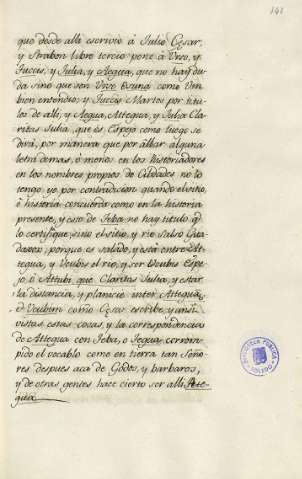 141
que desde alli escrivio á Julio Cesar,
y Strabon libro tercio pone á Urso, y
Tuccis, y Julia, y Ategua, que no hay du-
da sino que son Urso Osuna como Vm
bien entendio; y Tuccis Martos por titu-
los de alli, y Ategua, Attegua, y Julia Cla-
ritas Julia, que es Espejo como luego se
dirá, por manera que por faltar alguna
letra demas, ó menos en los Historiadores
en los nombres propios de Ciudades no lo
tengo yo por contradicion quando el sitio,
é historia concuerda como en la historia
presente, y esto de Teba no hay titulo q.
lo certifique, sino el sitio, y rio Salso Gua-
daxox, porque es salado, y está entre At-
tegua, y Vcubis el rio, y ser Vcubis Espe-
jo, ó Attubi que Claritas Julia, y estar
la distancia, y planicie inter Atteguam,
et Vcubim como Cesar escribe, y ansi
vistas estas cosas, y la correspondencia
de Attegua con Teba, ó Tegua corrom-
pido el vocablo como en tierra tan Seño-
res despues acá de Godos, y barbaros,
y de otras gentes hace cierto ser alli Ate-
gua.
BIBLIOTECA PUBLICA
TOLEDO